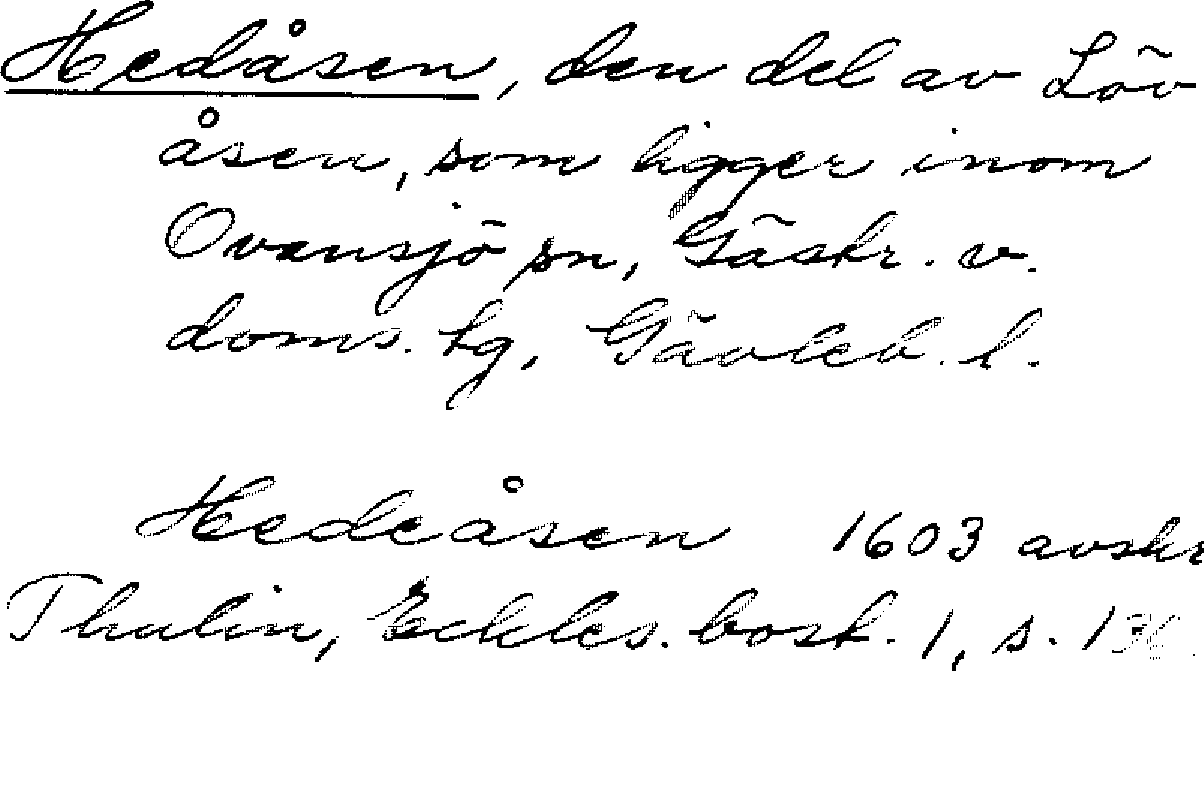 Hedåsen, den del av Löv
åsen, som ligger inom
Ovansjö sn, Gästr. v.
doms. tg, Gävleb. l.
Hedeåsen 1603 avskr
Thulin, Eckles. bost. 1, s.